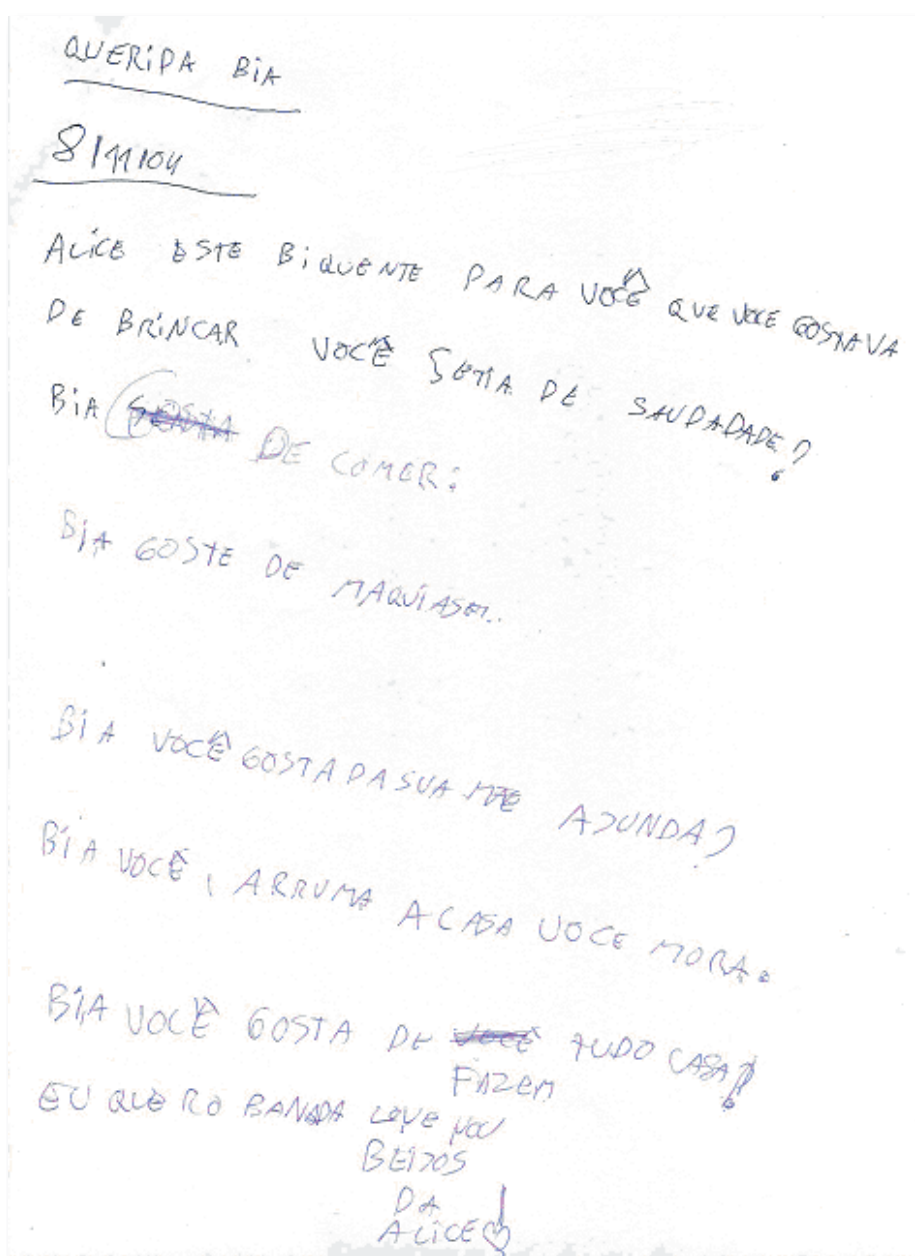 QUERIDA BIA
8/11/04
ALICE ESTE BIQUENTE PARA VOCÊ QUE VOCE GOSTAVA
DE BRINCAR VOCÊ SETIA DE SAUDADADE?
BIA GOSTA DE COMER:
BIA GOSTE DE MAQUIAGEM..
BIA VOCÊ GOSTA DA SUA MÃE AJUNDA?
BIA VOCÊ, ARRUMA A CASA VOCE MORA.
BIA VOCÊ GOSTA DE VOCÊ TUDO CASA?
FAZEM
EU QUERO BANADA LOVE YOU
BEIJOS
DA
ALICE